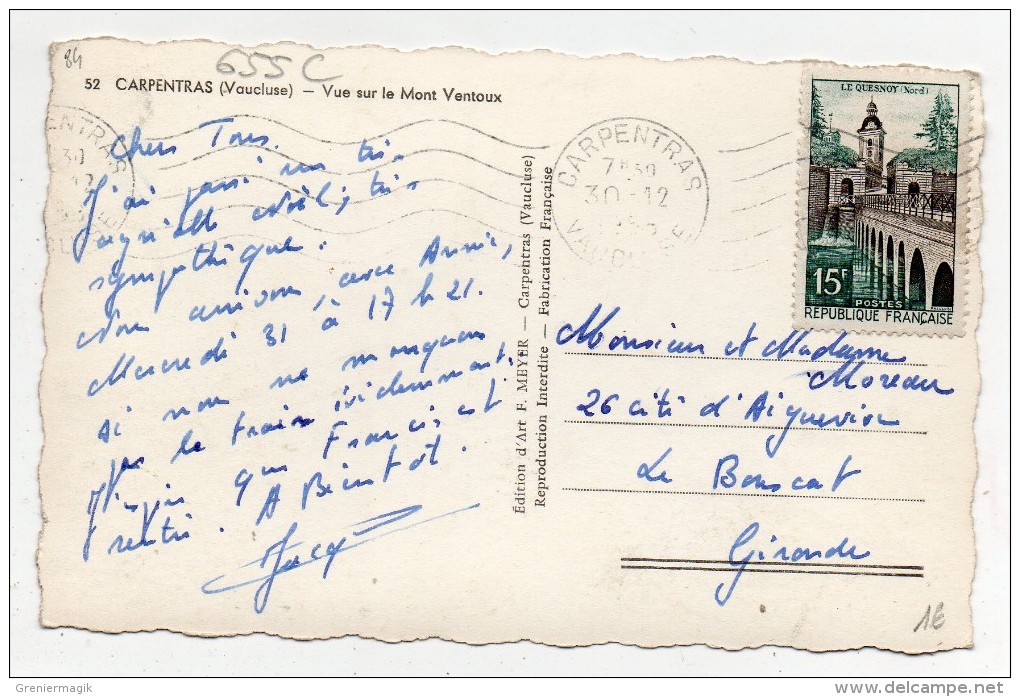 84
655 C
52 CARPENTRAS (Vaucluse) — Vue sur le Mont Ventoux
Chers Tous.
J'ai passé un très
agréable Noël, très
sympathique.
Nous arrivons avec Annie,
Mercredi 31 à 17 h 21.
si nous ne manquons
pas le train évidemment.
J'espère que Francis est
rentré. A Bientôt.
Édition d'Art F. MEYER — Carpentras (Vaucluse)
Reproduction Interdite — Fabrication Française
CARPENTRAS
7H30
30-12
VAUCLUSE
LE QUESNOY (Nord)
15F
POSTES
REPUBLIQUE FRANÇAISE
Monsieur et Madame
Moreau
26 cité d'Aiguevive
Le Bouscat
Gironde
1€
Greniermagik
www.delcampe.net